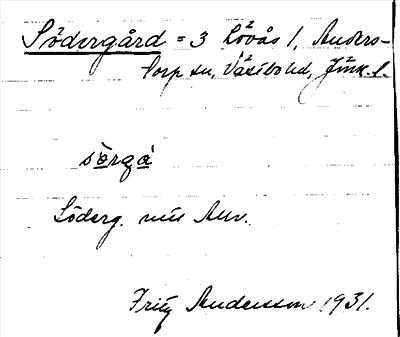 Södergård = 3 Lövås 1, Anders-
torp sn, Västbo hd, Jönk. l.
sörgá
Söderg. mis Anv.
Fritz Andersson 1931.